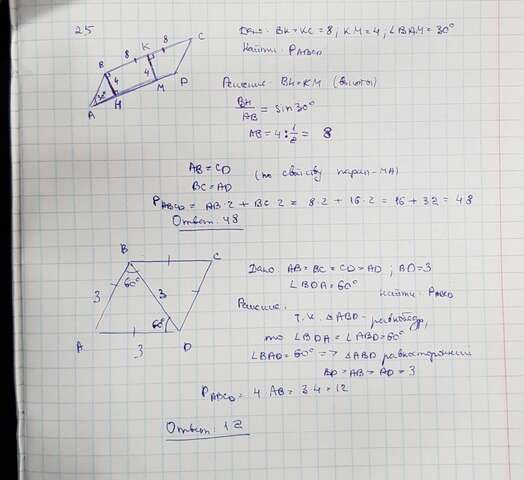 25
Дано: BK=KC=8; KM=4; ∠BAM=30°
Найти: PABCD
B 8 K 8 C
4 4
30°
A H M D
Решение: BH=KM (высоты)
BH/AB = sin30°
AB=4:1/2= 8
AB=CD
BC=AD (по свойству парал-ма)
PABCD = AB·2 + BC·2 = 8·2 + 16·2 = 16 + 32 = 48
Ответ: 48
B C
60°
3 3
60°
A 3 D
Дано: AB=BC=CD=AD; BD=3
∠BDA=60° Найти: PABCD
Решение:
т.к. △ABD - равнобедр,
то ∠BDA=∠ABD=60°
∠BAD=60° => △ABD равносторонний
BD=AB=AD=3
PABCD= 4 AB= 3·4=12
Ответ: 12